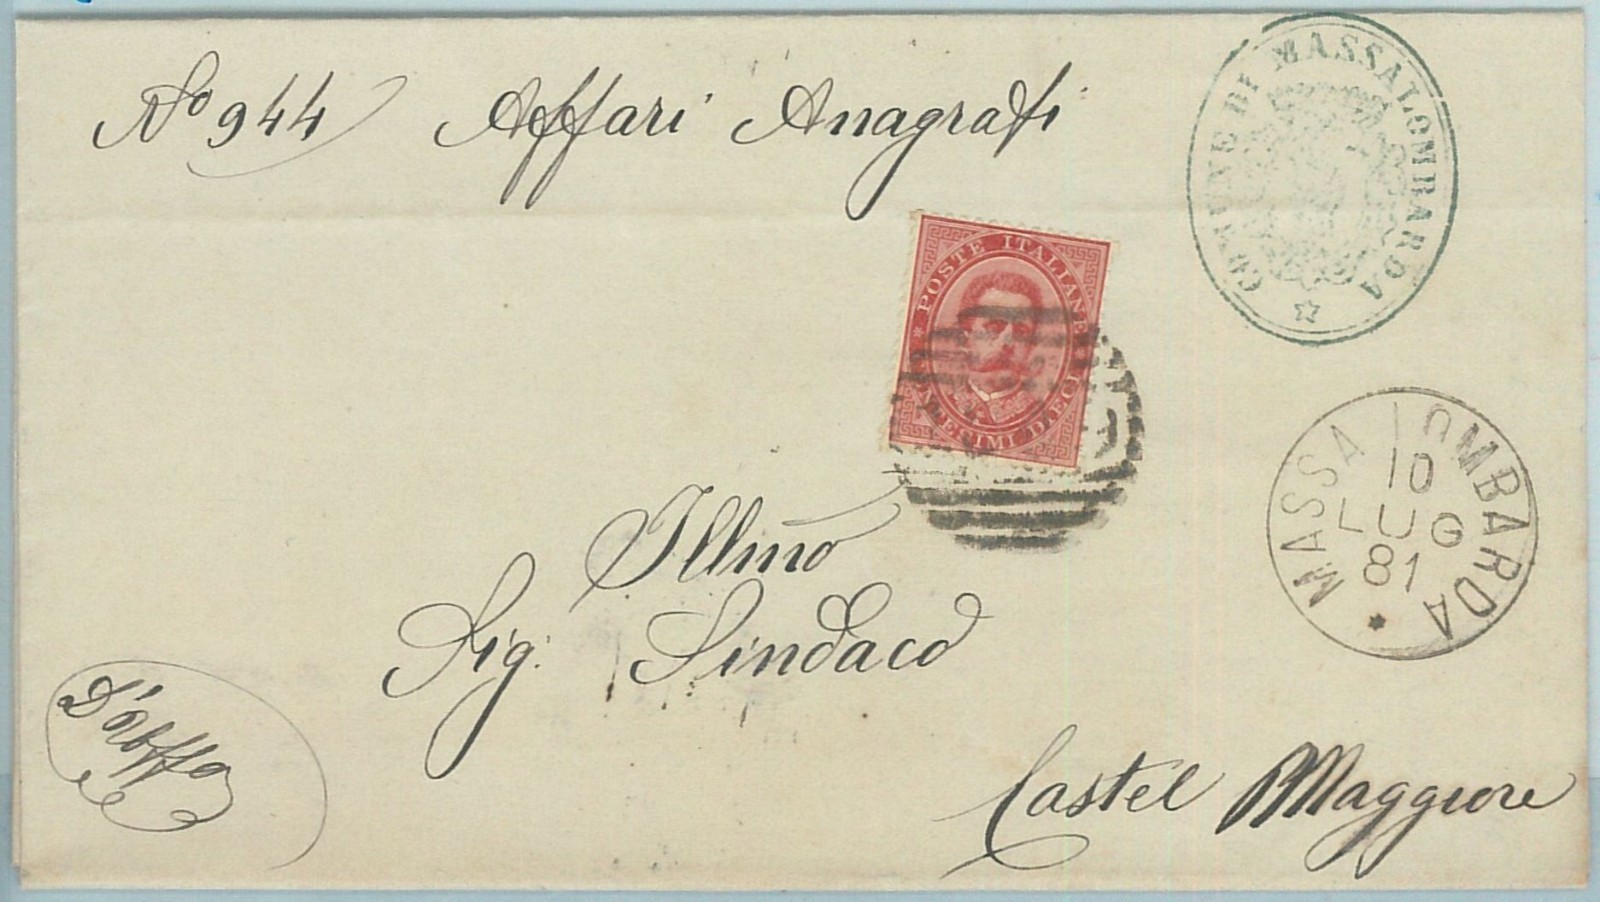 No 944 Affari Anagrafi
COMUNE DI MASSALOMBARDA
POSTE ITALIANE
CENTESIMI DIECI
MASSA LOMBARDA
10
LUG
81
Illmo
Sig: Sindaco
D'Uffo
Castel Maggiore